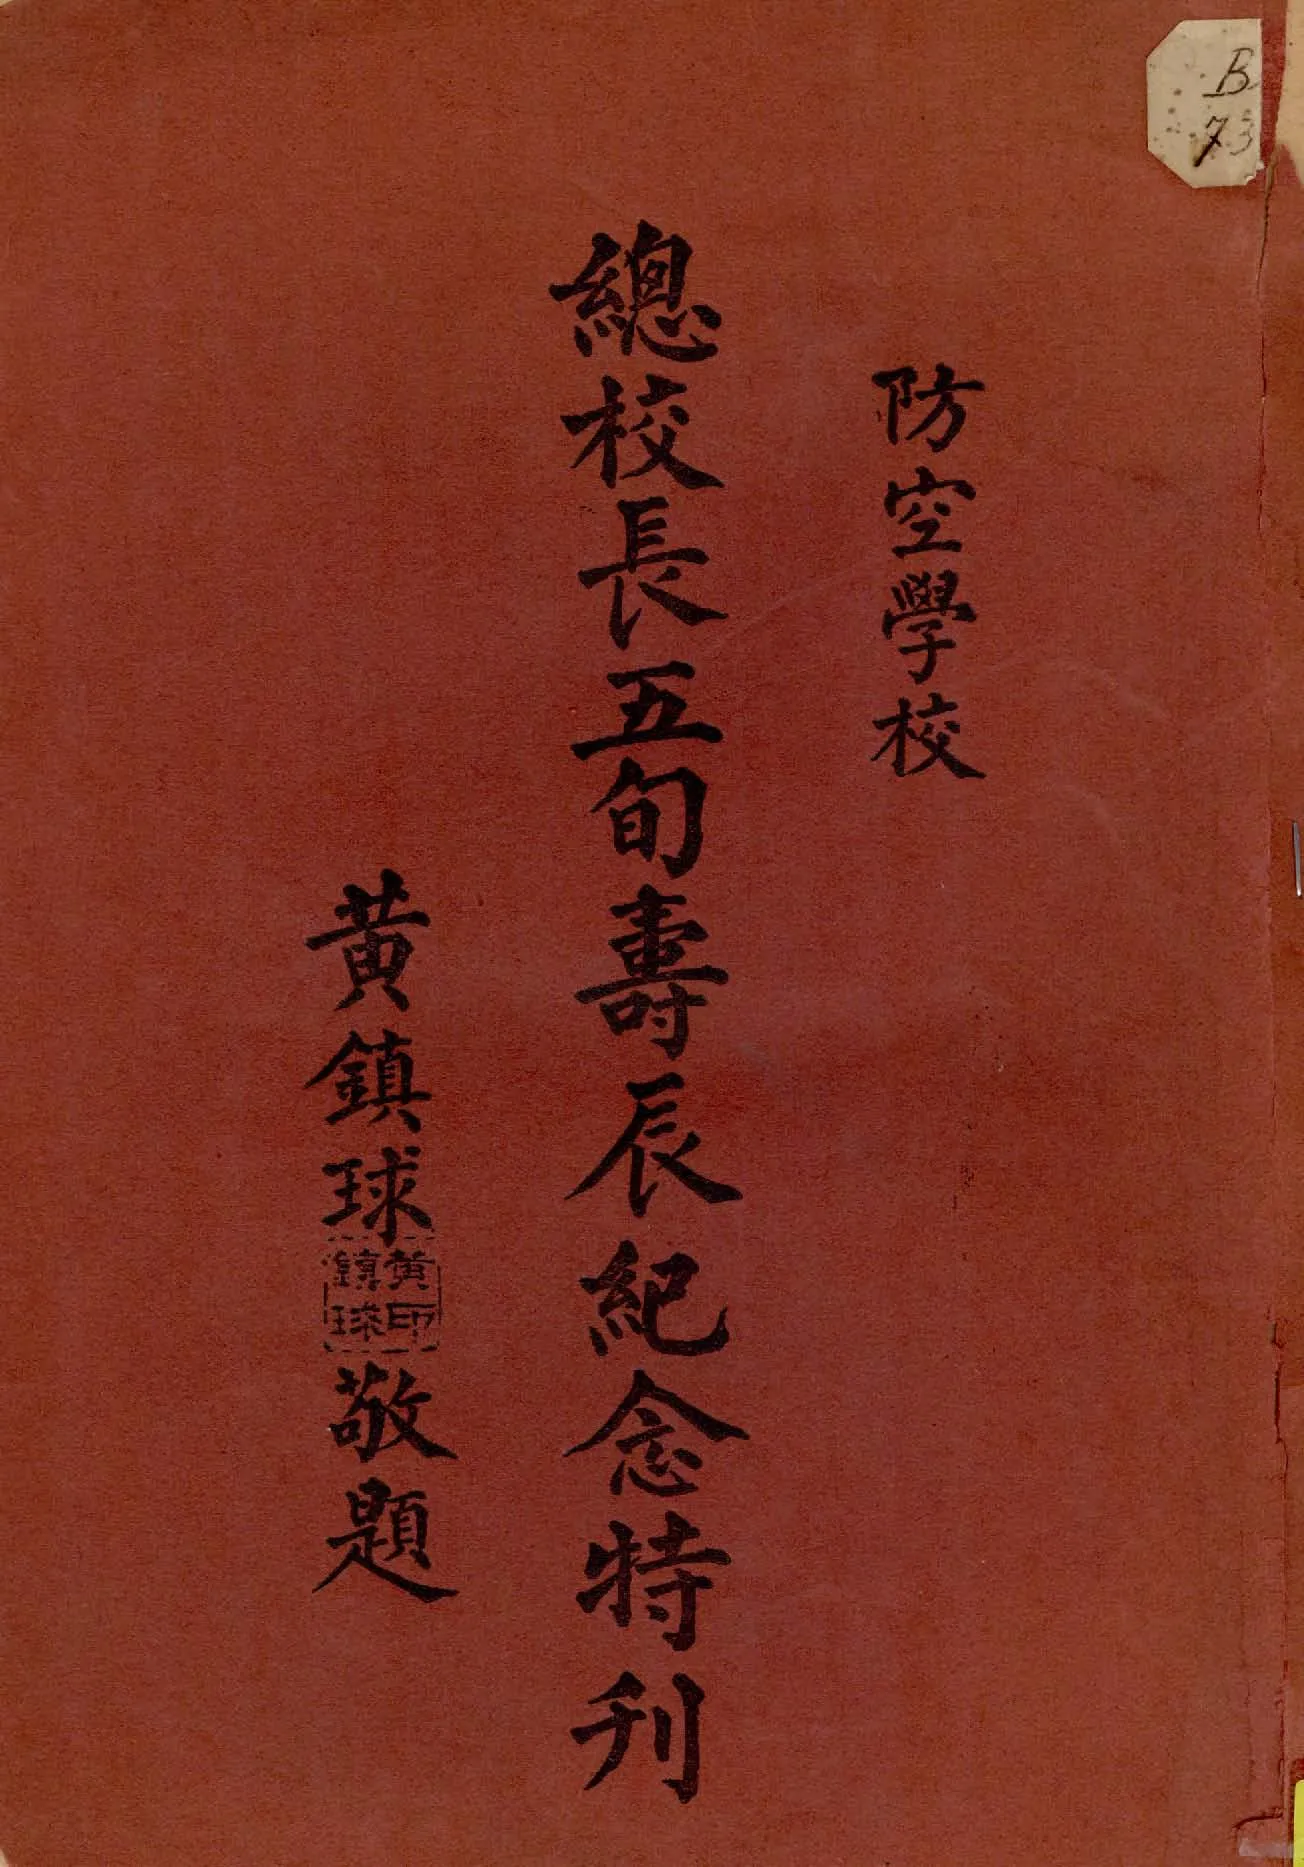 B
73
防空學校
總校長五旬壽辰紀念特刊
黃鎮球敬題
黃印
鎮球